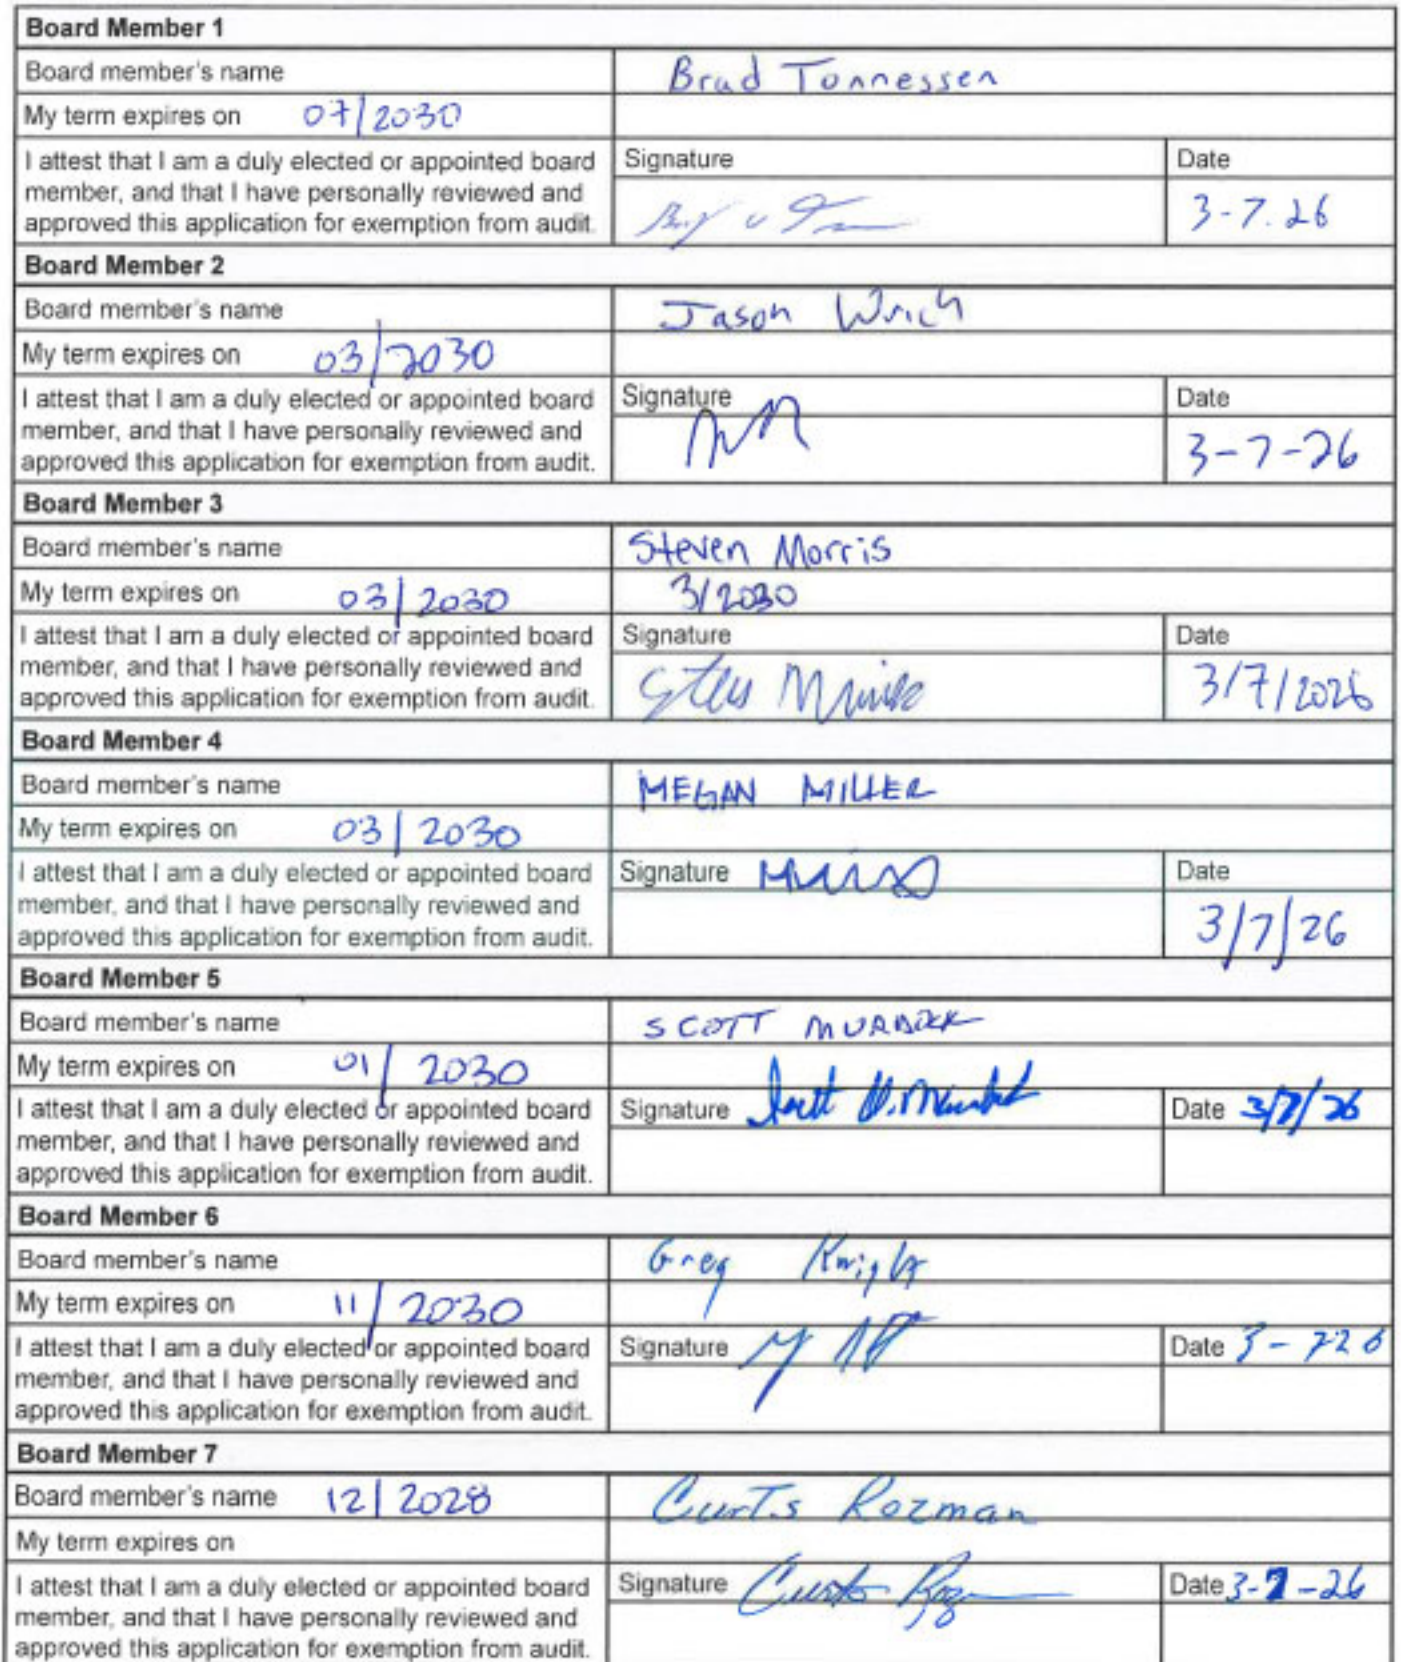 Board Member 1
Board member's name Brad Tonnessen
My term expires on 07/2030
I attest that I am a duly elected or appointed board Signature Date
member, and that I have personally reviewed and
approved this application for exemption from audit. 3-7.26
Board Member 2
Board member's name Jason Wrich
My term expires on 03/2030
I attest that I am a duly elected or appointed board Signature Date
member, and that I have personally reviewed and
approved this application for exemption from audit. 3-7-26
Board Member 3
Board member's name Steven Morris
My term expires on 03/2030 3/2030
I attest that I am a duly elected or appointed board Signature Date
member, and that I have personally reviewed and
approved this application for exemption from audit. 3/7/2026
Board Member 4
Board member's name MEGAN MILLER
My term expires on 03/2030
I attest that I am a duly elected or appointed board Signature Date
member, and that I have personally reviewed and
approved this application for exemption from audit. 3/7/26
Board Member 5
Board member's name SCOTT MURDOCK
My term expires on 01/2030
I attest that I am a duly elected or appointed board Signature Date 3/7/26
member, and that I have personally reviewed and
approved this application for exemption from audit.
Board Member 6
Board member's name Greg Knight
My term expires on 11/2030
I attest that I am a duly elected or appointed board Signature Date 3-726
member, and that I have personally reviewed and
approved this application for exemption from audit.
Board Member 7
Board member's name 12/2028 Curtis Rozman
My term expires on
I attest that I am a duly elected or appointed board Signature Date 3-7-26
member, and that I have personally reviewed and
approved this application for exemption from audit.